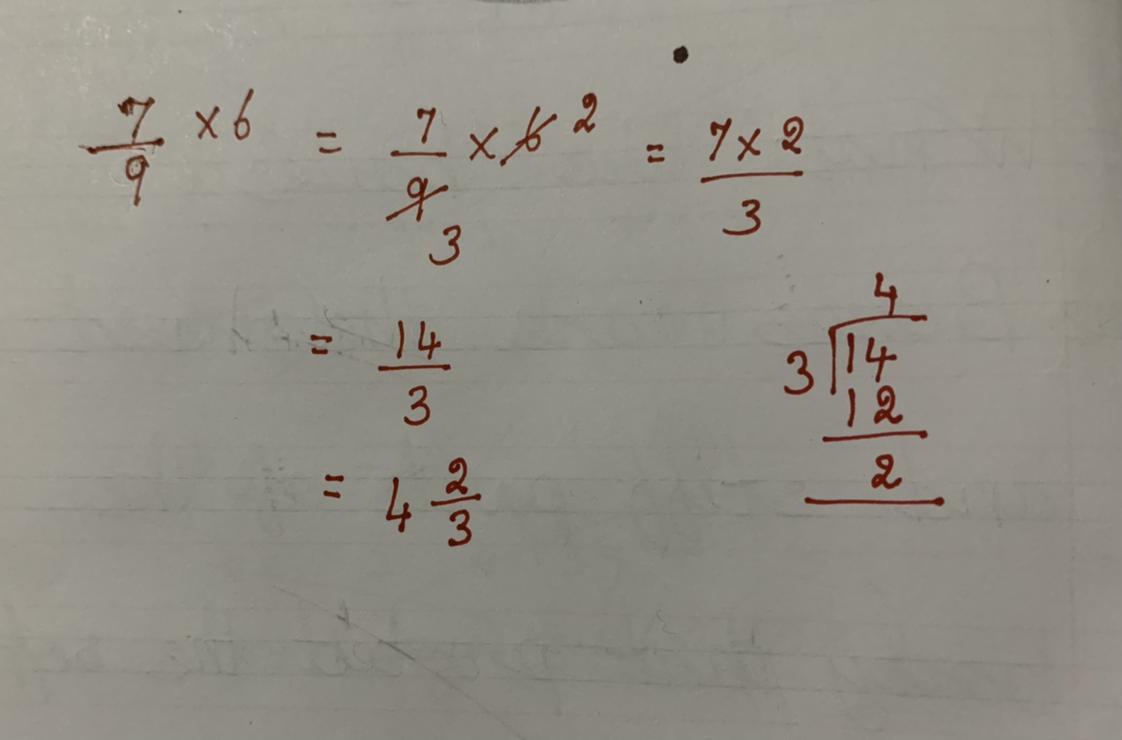 7/9 × 6 = 7/9 3 × 6 2 = 7 × 2/3
= 14/3
= 4 2/3
4
3 14
12
2